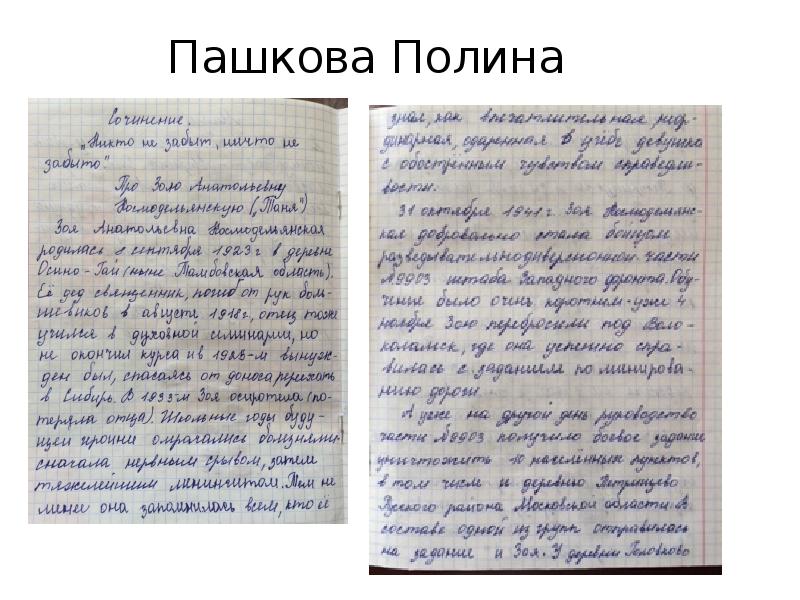 Пашкова Полина
Сочинение.
"Никто не забыт, ничто не
забыто."
Про Зою Анатольевну
Космодемьянскую ("Таня")
Зоя Анатольевна Космодемьянская
родилась 8 сентября 1923 г в деревне
Осино-Гай (ныне Тамбовская область).
Её дед священник, погиб от рук боль-
шевиков в августа 1918г, отец тоже
учился в духовной семинарии, но
не окончил курса и в 1926-м вынуж-
ден был, спасаясь от доноса переехать
в Сибирь. В 1933-м Зоя осиротела (по-
теряла отца). Школьные годы буду-
щей героини омрачались болезнями:
сначала нервным срывом, затем
тяжелейшим менингитом. Тем не
менее она запомнилась всем, кто её
знал, как впечатлительная, неор-
динарная, одаренная в учёбе девушка
с обостренным чувством справедли-
вости.
31 октября 1941 г. Зоя Космодемьянс-
кая добровольно стала бойцом
разведывательнодиверсионной части
№9903 штаба Западного фронта. Обу-
чение было очень коротким - уже 4
ноября Зою перебросили под Воло-
коламск, где она успешно спра-
вилась с заданием по минирова-
нию дороги.
А уже на другой день руководство
части №9903 получило боевое задание
уничтожить 10 населённых пунктов,
в том числе и деревню Петрищево
Рузского района Московской области. В
составе одной из групп отправилась
на задание и Зоя. У деревни Головково